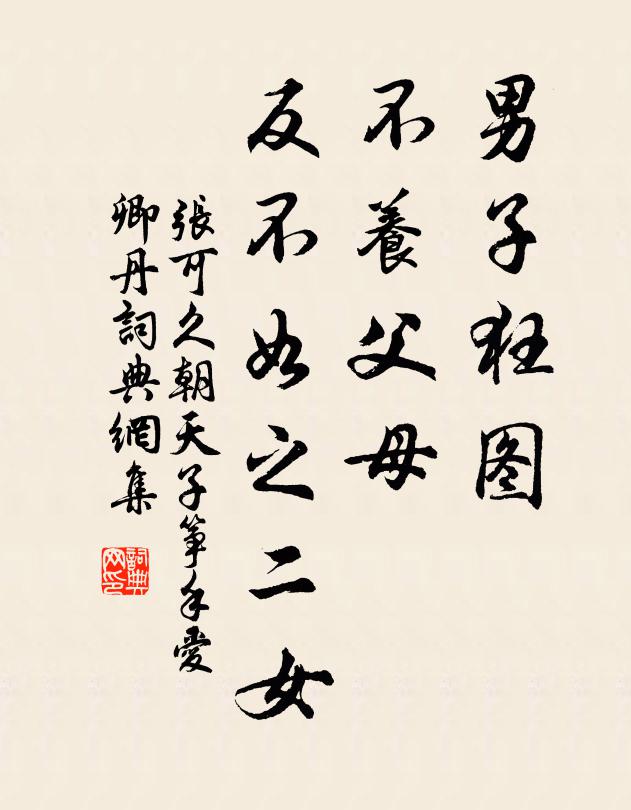 男子狂图
不養父母
反不如之二女
張可久朝天子箏手愛
卿丹詞典網集
詞典网印